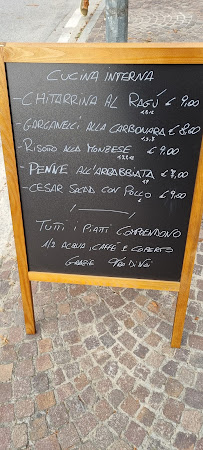 CUCINA INTERNA
- CHITARRINA AL RAGÚ € 9,00
- GARGANELLI ALLA CARBONARA € 8,00
- RISOTTO ALLA MONZESE € 9,00
- PENNE ALL'ARRABBIATA € 7,00
- CESAR SALAD CON POLLO € 9,00
TUTTI I PIATTI COMPRENDONO
1/2 ACQUA, CAFFÈ E COPERTO
GRAZIE